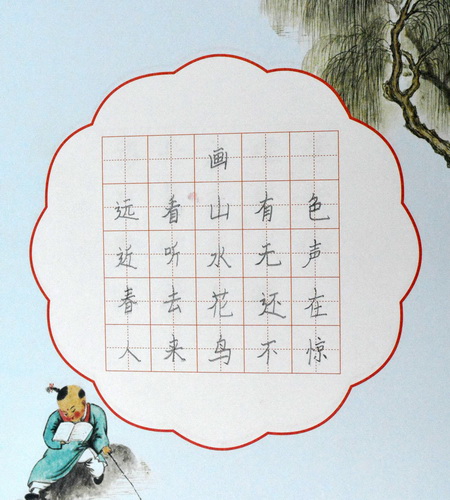 画
远看山有色
近听水无声
春去花还在
人来鸟不惊